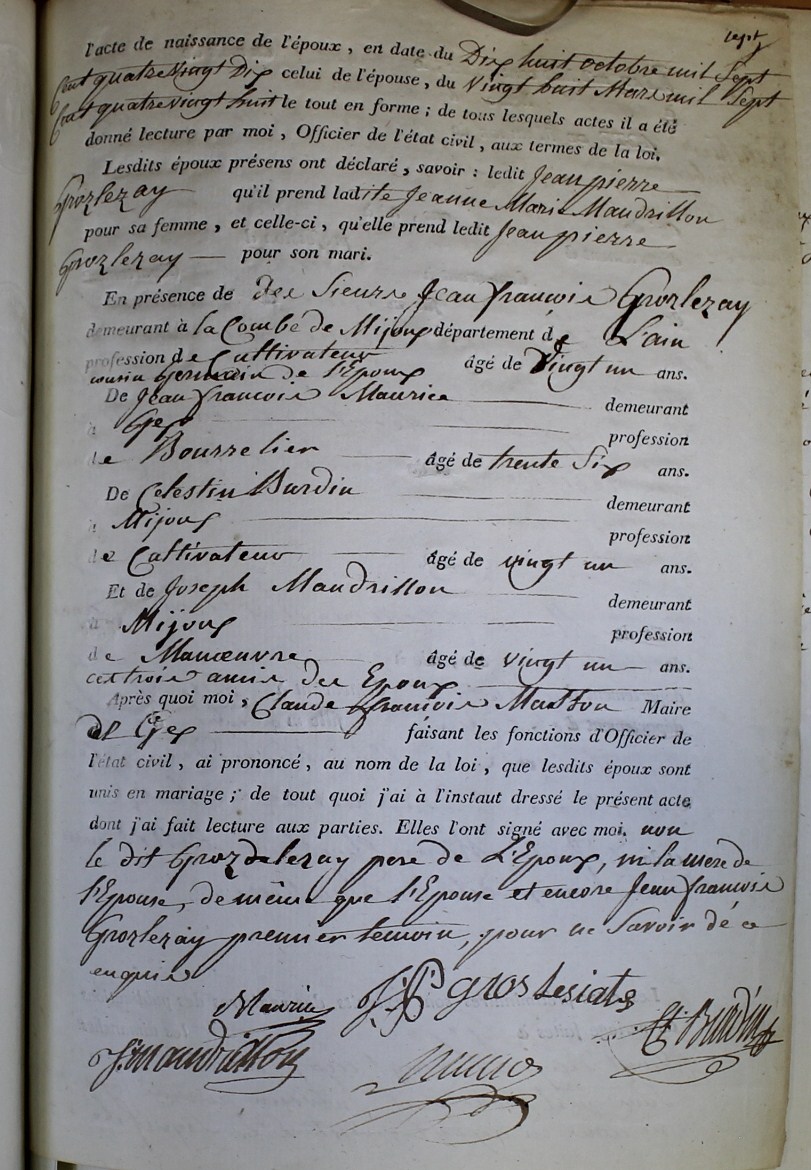 sept
l'acte de naissance de l'époux, en date du Dix huit octobre mil Sept
Cent quatre vingt Dix celui de l'épouse, du Vingt huit Mars mil Sept
Cent quatre vingt huit le tout en forme ; de tous lesquels actes il a été
donné lecture par moi, Officier de l'état civil, aux termes de la loi.
Lesdits époux présens ont déclaré, savoir : ledit Jean pierre
Grozlezay qu'il prend ladite Jeanne Marie Maudrillon
pour sa femme, et celle-ci, qu'elle prend ledit Jean pierre
Grozlezay — pour son mari.
En présence de des Sieurs Jean françois Grozlezay
demeurant à la Combe de Mijoux département de L'ain
profession de Cultivateur âgé de Vingt un ans.
cousin Germain de l'Epoux
De Jean francois Maurice demeurant
à Gex profession
de Bourrelier âgé de trente Six ans.
De Celestin Burdin demeurant
à Mijoux profession
de Cultivateur âgé de vingt un ans.
Et de Joseph Maudrillon demeurant
à Mijoux profession
de Manœuvre âgé de vingt un ans.
ces trois amis des Epoux
Après quoi moi, Claude françois Maire
de Gex faisant les fonctions d'Officier de
l'état civil, ai prononcé, au nom de la loi, que lesdits époux sont
unis en mariage ; de tout quoi j'ai à l'instaut dressé le présent acte
dont j'ai fait lecture aux parties. Elles l'ont signé avec moi. non
le dit Grozdelezay pere de L'Epoux, ni la mere de
l'Epouse, de même que l'Epouse et encore Jean françois
Grozlezay premier temoin, pour ne Savoir de ce
enquis
Maurice J. P. groslesiats Ct. Burdin
J. maudrillon